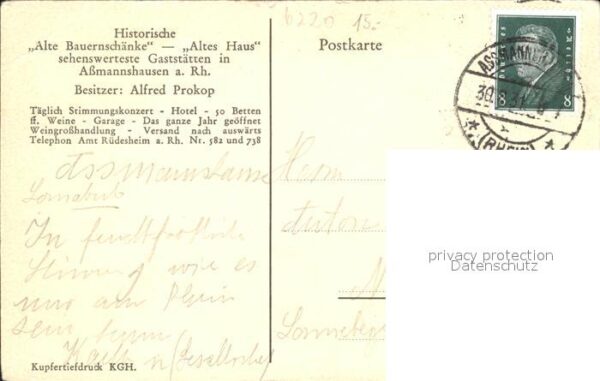 6220 15.-
Historische
„Alte Bauernschänke“ — „Altes Haus“
sehenswerteste Gaststätten in
Aßmannshausen a. Rh.
Besitzer: Alfred Prokop
Täglich Stimmungskonzert - Hotel - 50 Betten
ff. Weine - Garage - Das ganze Jahr geöffnet
Weingroßhandlung - Versand nach auswärts
Telephon Amt Rüdesheim a. Rh. Nr. 582 und 738
Assmannshausen
Sonnabend
In feuchtfröhlicher
Stimmung wie es
nur am Rhein
sein kann
Kupfertiefdruck KGH.
Postkarte
Deutsches Reich
8 8
ASSMANNSH
30.8.31
(RHEIN)
Herrn
Anton
Sonneberg
privacy protection
Datenschutz